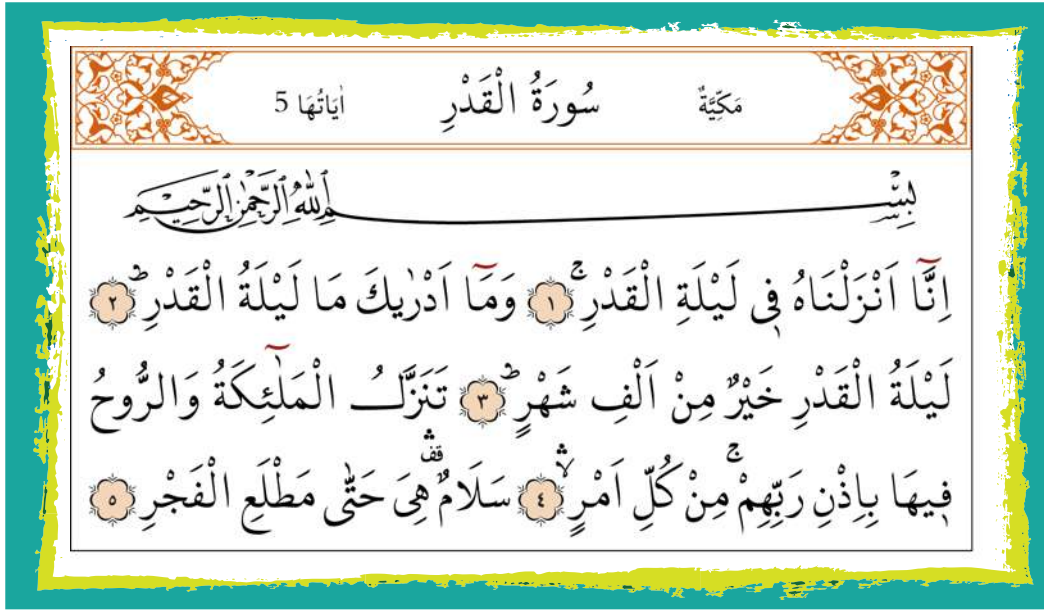 مَكِّيَّةٌ سُورَةُ الْقَدْرِ اٰيَاتُهَا 5
بِسْمِ اللّٰهِ الرَّحْمٰنِ الرَّحٖيمِ
اِنَّٓا اَنْزَلْنَاهُ فٖى لَيْلَةِ الْقَدْرِۚ ﴿١﴾ وَمَٓا اَدْرٰيكَ مَا لَيْلَةُ الْقَدْرِؕ ﴿٢﴾
لَيْلَةُ الْقَدْرِ خَيْرٌ مِنْ اَلْفِ شَهْرٍؕ ﴿٣﴾ تَنَزَّلُ الْمَلٰٓئِكَةُ وَالرُّوحُ
فٖيهَا بِاِذْنِ رَبِّهِمْۚ مِنْ كُلِّ اَمْرٍۙۛ ﴿٤﴾ سَلَامٌ۠ۛ هِىَ حَتّٰى مَطْلَعِ الْفَجْرِ ﴿٥﴾